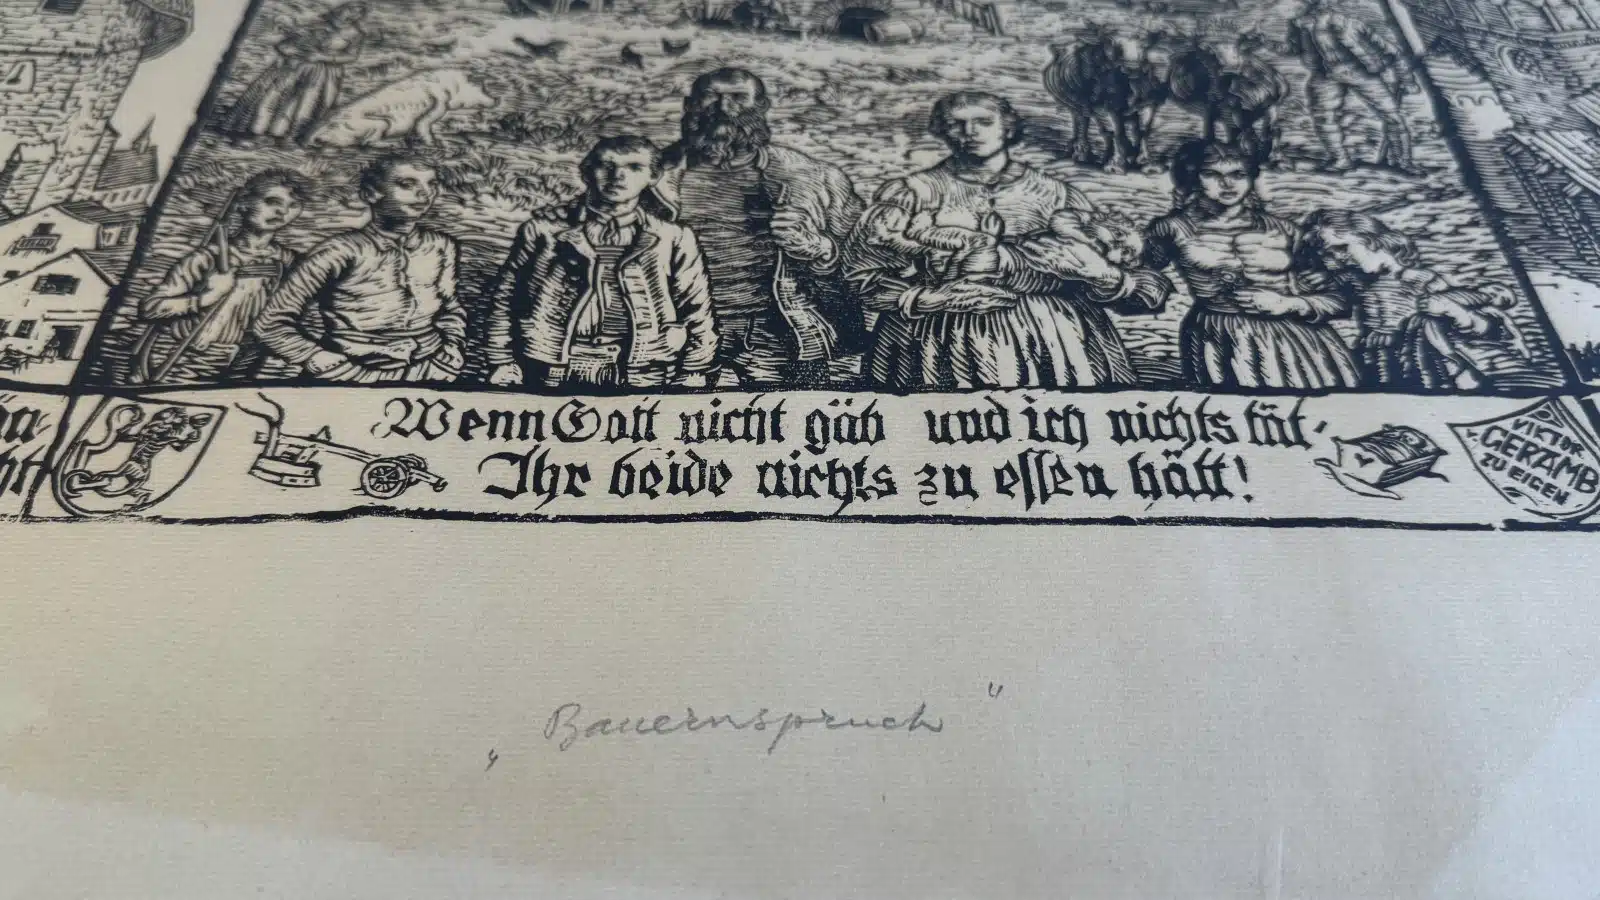 Wenn Gott nicht gäb und ich nichts tät,
Ihr beide nichts zu essen hätt!
VICTOR
v. GERAMB
ZU EIGEN
„Bauernspruch“